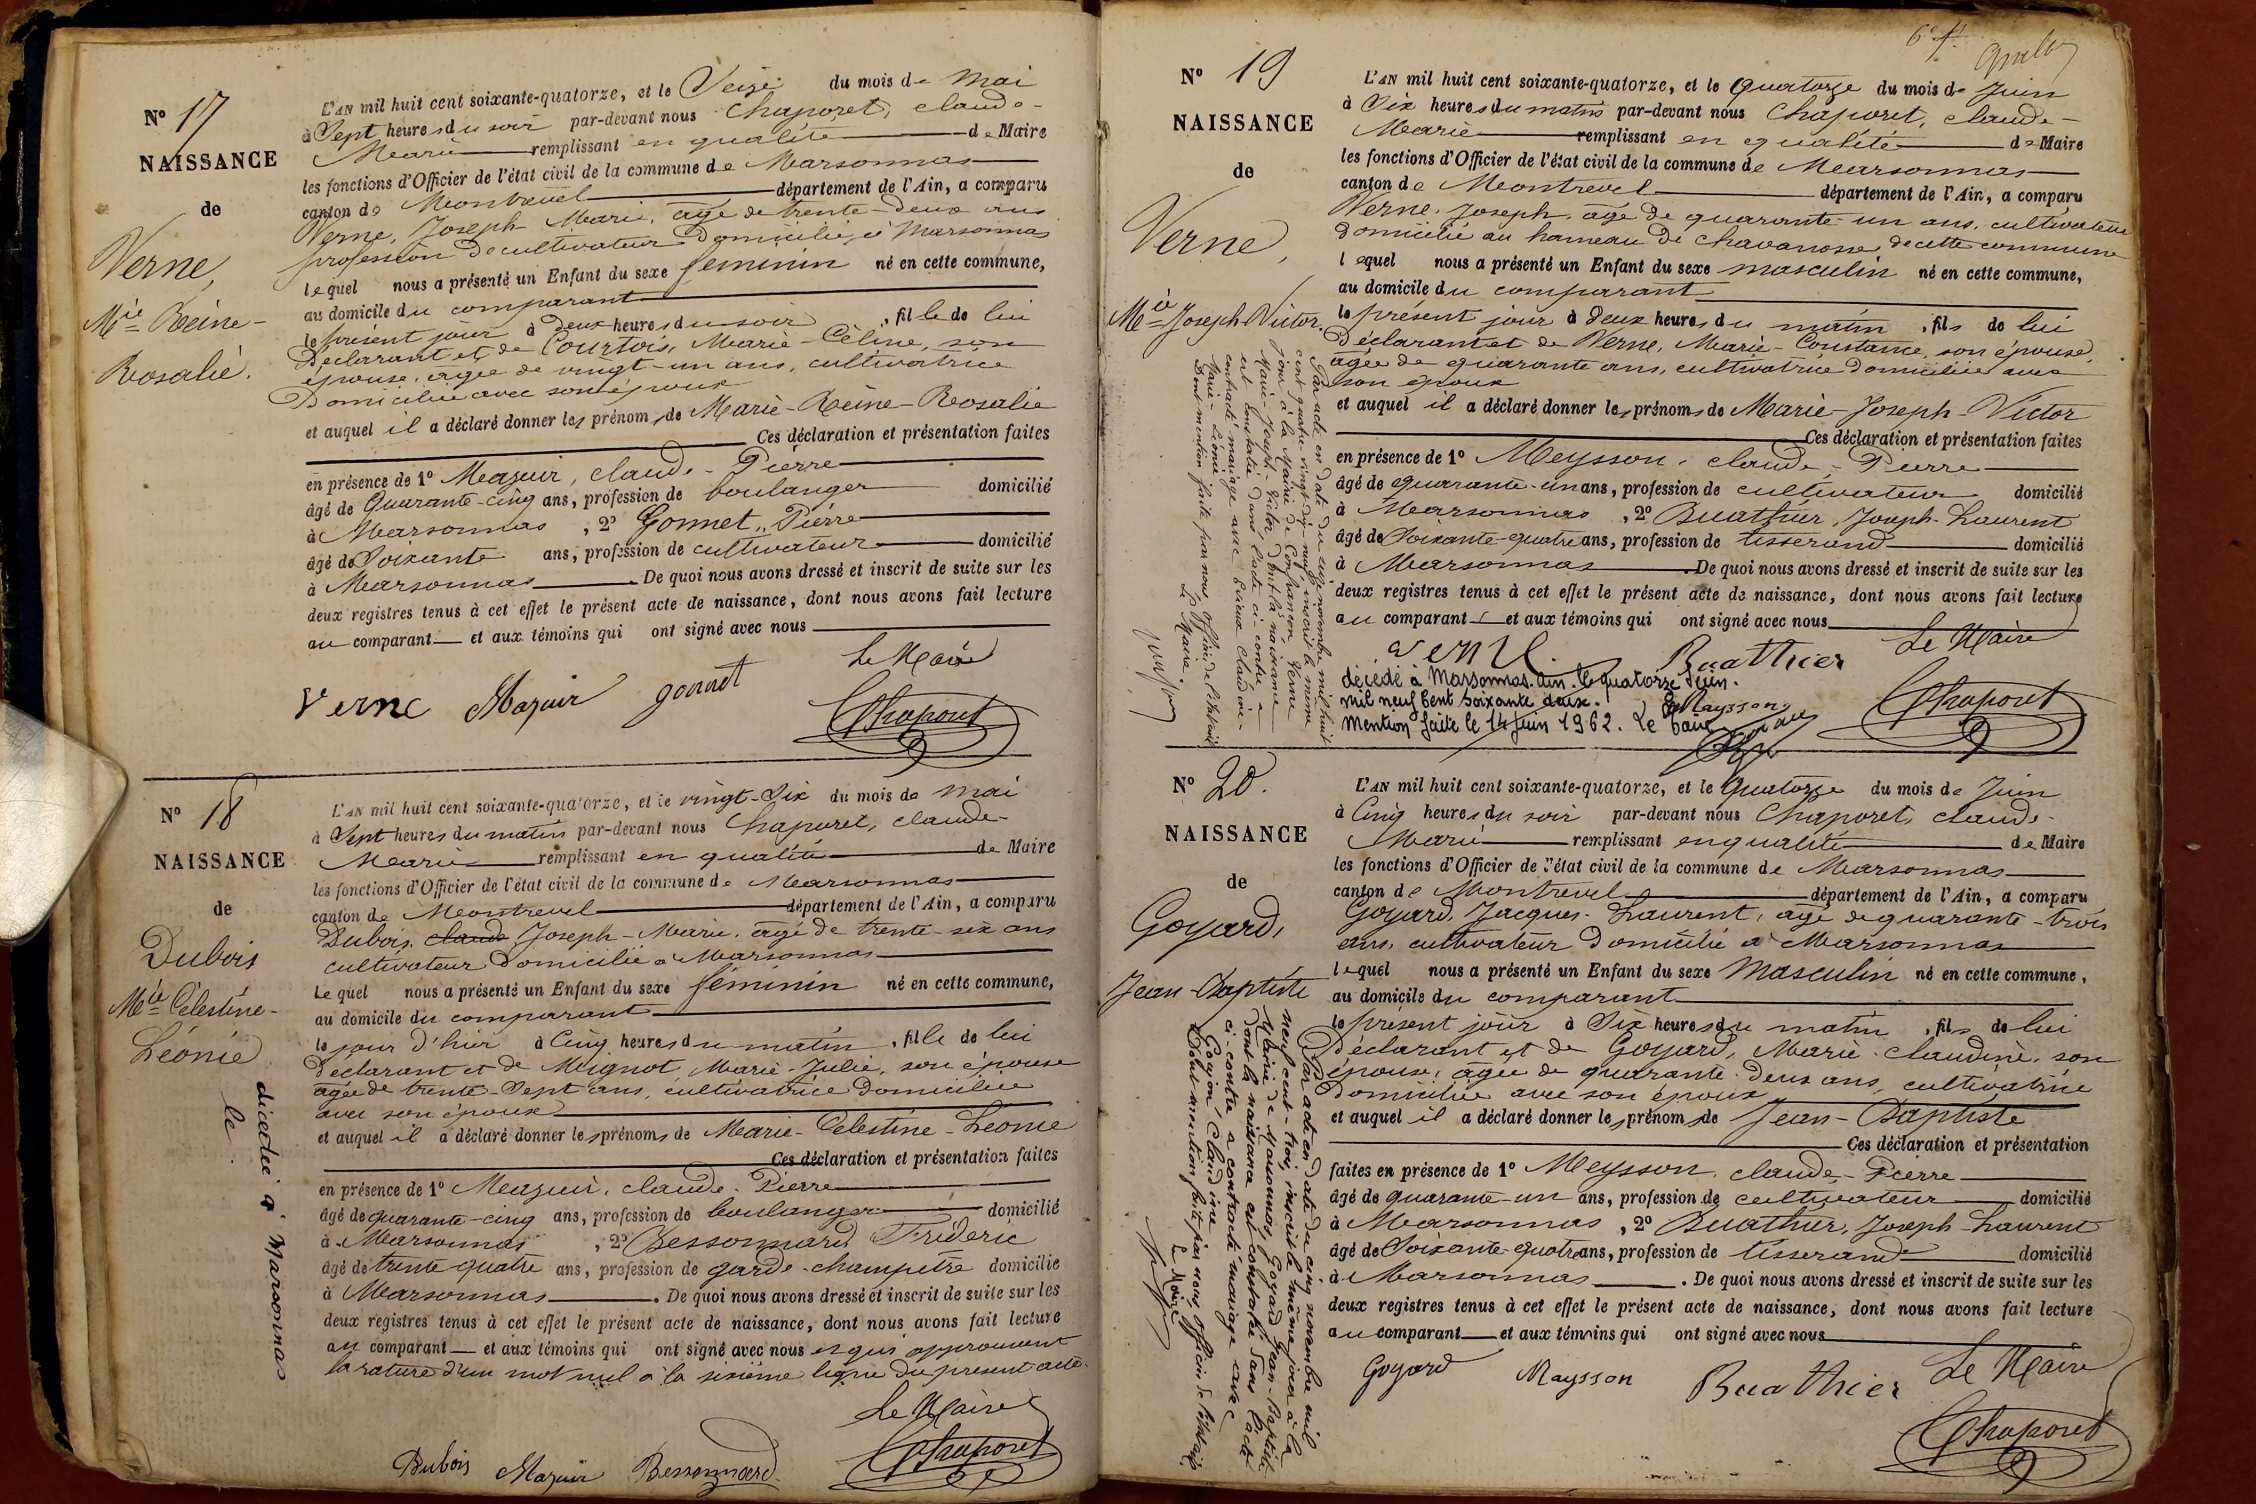 Nº 17
NAISSANCE
de
Verne,
Mie Reine-
Rosalie.
L'AN mil huit cent soixante-quatorze, et le Seize du mois de Mai
à Sept heures du soir par-devant nous Chaporet, claude-
Marie remplissant en qualité de Maire
les fonctions d'Officier de l'état civil de la commune de Marsonnas
canton de Montrevel département de l'Ain, a comparu
Verne, Joseph Marie, âgé de trente-deux ans
profession de cultivateur domicilié à Marsonnas
lequel nous a présenté un Enfant du sexe féminin né en cette commune,
au domicile du comparant
le présent jour à deux heures du soir, fille de lui
Déclarant et de Courtois, Marie-Céline, son
épouse, âgée de vingt-un ans, cultivatrice
Domiciliée avec son époux
et auquel il a déclaré donner les prénoms de Marie-Reine-Rosalie
Ces déclaration et présentation faites
en présence de 1º Mazuir, claude-Pierre
âgé de Quarante-cinq ans, profession de boulanger domicilié
à Marsonnas, 2º Gonnet, Pierre
âgé de Soixante ans, profession de cultivateur domicilié
à Marsonnas. De quoi nous avons dressé et inscrit de suite sur les
deux registres tenus à cet effet le présent acte de naissance, dont nous avons fait lecture
au comparant et aux témoins qui ont signé avec nous
Le Maire
Verne Mazuir gonnet Chaporet
Nº 18
NAISSANCE
de
Dubois
Mie Célestine-
Léonie
décédée à Marsonnas
le
L'AN mil huit cent soixante-quatorze, et le vingt-Six du mois de Mai
à Sept heures du matin par-devant nous Chaporet, claude-
Marie remplissant en qualité de Maire
les fonctions d'Officier de l'état civil de la commune de Marsonnas
canton de Montrevel département de l'Ain, a comparu
Dubois, claude Joseph-Marie, âgé de trente-six ans
cultivateur domicilié à Marsonnas
Lequel nous a présenté un Enfant du sexe féminin né en cette commune,
au domicile du comparant
le jour d'hier à Cinq heures du matin, fille de lui
Déclarant et de Mignot, Marie-Julie, son épouse
âgée de trente-Sept ans, cultivatrice domiciliée
avec son époux
et auquel il a déclaré donner les prénoms de Marie-Celestine-Léonie
Ces déclaration et présentation faites
en présence de 1º Mazuir, claude-Pierre
âgé de quarante-cinq ans, profession de boulanger domicilié
à Marsonnas, 2º Bessonnard Fréderic
âgé de trente quatre ans, profession de garde-champêtre domicilié
à Marsonnas. De quoi nous avons dressé et inscrit de suite sur les
deux registres tenus à cet effet le présent acte de naissance, dont nous avons fait lecture
au comparant et aux témoins qui ont signé avec nous et qui approuvent
la rature d'un mot nul à la sixième ligne du présent acte.
Le Maire
Dubois Mazuir Bessonnard Chaporet
Nº 19
NAISSANCE
de
Verne,
Mie Joseph-Victor.
L'AN mil huit cent soixante-quatorze, et le Quatorze du mois de Juin
à Six heures du matin par-devant nous Chaporet, claude-
Marie remplissant en qualité de Maire
les fonctions d'Officier de l'état civil de la commune de Marsonnas
canton de Montrevel département de l'Ain, a comparu
Verne, Joseph, âgé de quarante-un ans, cultivateur
domicilié au hameau de Chavanosse, de cette commune
lequel nous a présenté un Enfant du sexe masculin né en cette commune,
au domicile du comparant
le présent jour à deux heures du matin, fils de lui
Déclarant et de Verne, Marie-Constance, son épouse,
âgée de quarante ans, cultivatrice domiciliée avec
son époux
et auquel il a déclaré donner les prénoms de Marie-Joseph-Victor
Ces déclaration et présentation faites
en présence de 1º Meysson, claude-Pierre
âgé de quarante-un ans, profession de cultivateur domicilié
à Marsonnas, 2º Buathier, Joseph-Laurent
âgé de Soixante-quatre ans, profession de tisserand domicilié
à Marsonnas. De quoi nous avons dressé et inscrit de suite sur les
deux registres tenus à cet effet le présent acte de naissance, dont nous avons fait lecture
au comparant et aux témoins qui ont signé avec nous
Le Maire
Verne Buathier
Maysson Chaporet
décédé à Marsonnas. Ain. le quatorze Juin.
mil neuf Cent Soixante deux.
Mention faite le 14 Juin 1962. Le
Par acte en date du onze novembre mil huit
cent quatre-vingt-dix-neuf, inscrit le même
jour à la Mairie de Confrançon, Verne
Marie-Joseph-Victor, dont la naissance
est constatée dans l'acte ci-contre a
contracté mariage avec Claudine-
Marie-Léonie
Dont mention faite par nous Officier de l'état civil
Le Maire,
Nº 20.
NAISSANCE
de
Goyard,
Jean-Baptiste
L'AN mil huit cent soixante-quatorze, et le Quatorze du mois de Juin
à Cinq heures du soir par-devant nous Chaporet, claude-
Marie remplissant en qualité de Maire
les fonctions d'Officier de l'état civil de la commune de Marsonnas
canton de Montrevel département de l'Ain, a comparu
Goyard, Jacques-Laurent, âgé de quarante-trois
ans, cultivateur domicilié à Marsonnas
lequel nous a présenté un Enfant du sexe Masculin né en cette commune,
au domicile du comparant
le présent jour à Six heures du matin, fils de lui
Déclarant et de Goyard, Marie-Claudine, son
épouse, âgée de quarante-deux ans, cultivatrice
Domiciliée avec son époux
et auquel il a déclaré donner les prénoms de Jean-Baptiste
Ces déclaration et présentation
faites en présence de 1º Meysson, claude-Pierre
âgé de quarante-un ans, profession de cultivateur domicilié
à Marsonnas, 2º Buathier, Joseph-Laurent
âgé de Soixante-quatre ans, profession de tisserand domicilié
à Marsonnas. De quoi nous avons dressé et inscrit de suite sur les
deux registres tenus à cet effet le présent acte de naissance, dont nous avons fait lecture
au comparant et aux témoins qui ont signé avec nous
Le Maire
Goyard Maysson Buathier Chaporet
Par acte en date du cinq novembre mil
neuf cent-trois, inscrit le même jour à la
Mairie de Marsonnas, Goyard Jean-Baptiste
dont la naissance est constatée dans l'acte
ci-contre a contracté mariage avec
Goyon, Claudine
Dont mention faite par nous officier de l'état civil
Le Maire